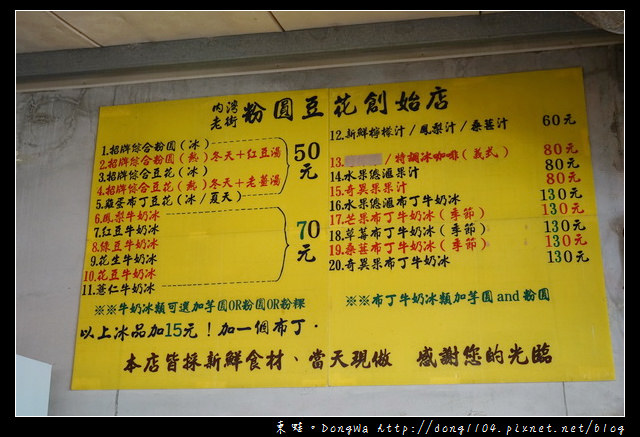 內灣老街 粉圓豆花創始店
1.招牌綜合粉圓(冰)
2.招牌綜合粉圓(熱)冬天+紅豆湯
3.招牌綜合豆花(冰)
4.招牌綜合豆花(熱)冬天+老薑湯
5.雞蛋布丁豆花(冰/夏天)
50元
6.鳳梨牛奶冰
7.紅豆牛奶冰
8.綠豆牛奶冰
9.花生牛奶冰
10.花豆牛奶冰
11.薏仁牛奶冰
70元
※※牛奶冰類可選加芋圓OR粉圓OR粉粿
以上冰品加15元!加一個布丁.
12.新鮮檸檬汁/鳳梨汁/桑葚汁 60元
13. /特調冰咖啡(義式) 80元
14.水果總滙果汁 80元
15.奇異果果汁 80元
16.水果總滙布丁牛奶冰 130元
17.芒果布丁牛奶冰(季節) 130元
18.草莓布丁牛奶冰(季節) 130元
19.桑葚布丁牛奶冰(季節) 130元
20.奇異果布丁牛奶冰 130元
※※布丁牛奶冰類加芋圓and粉圓
本店皆採新鮮食材、當天現做 感謝您的光臨
東蛙。DongWa http://dong1104.pixnet.net/blog